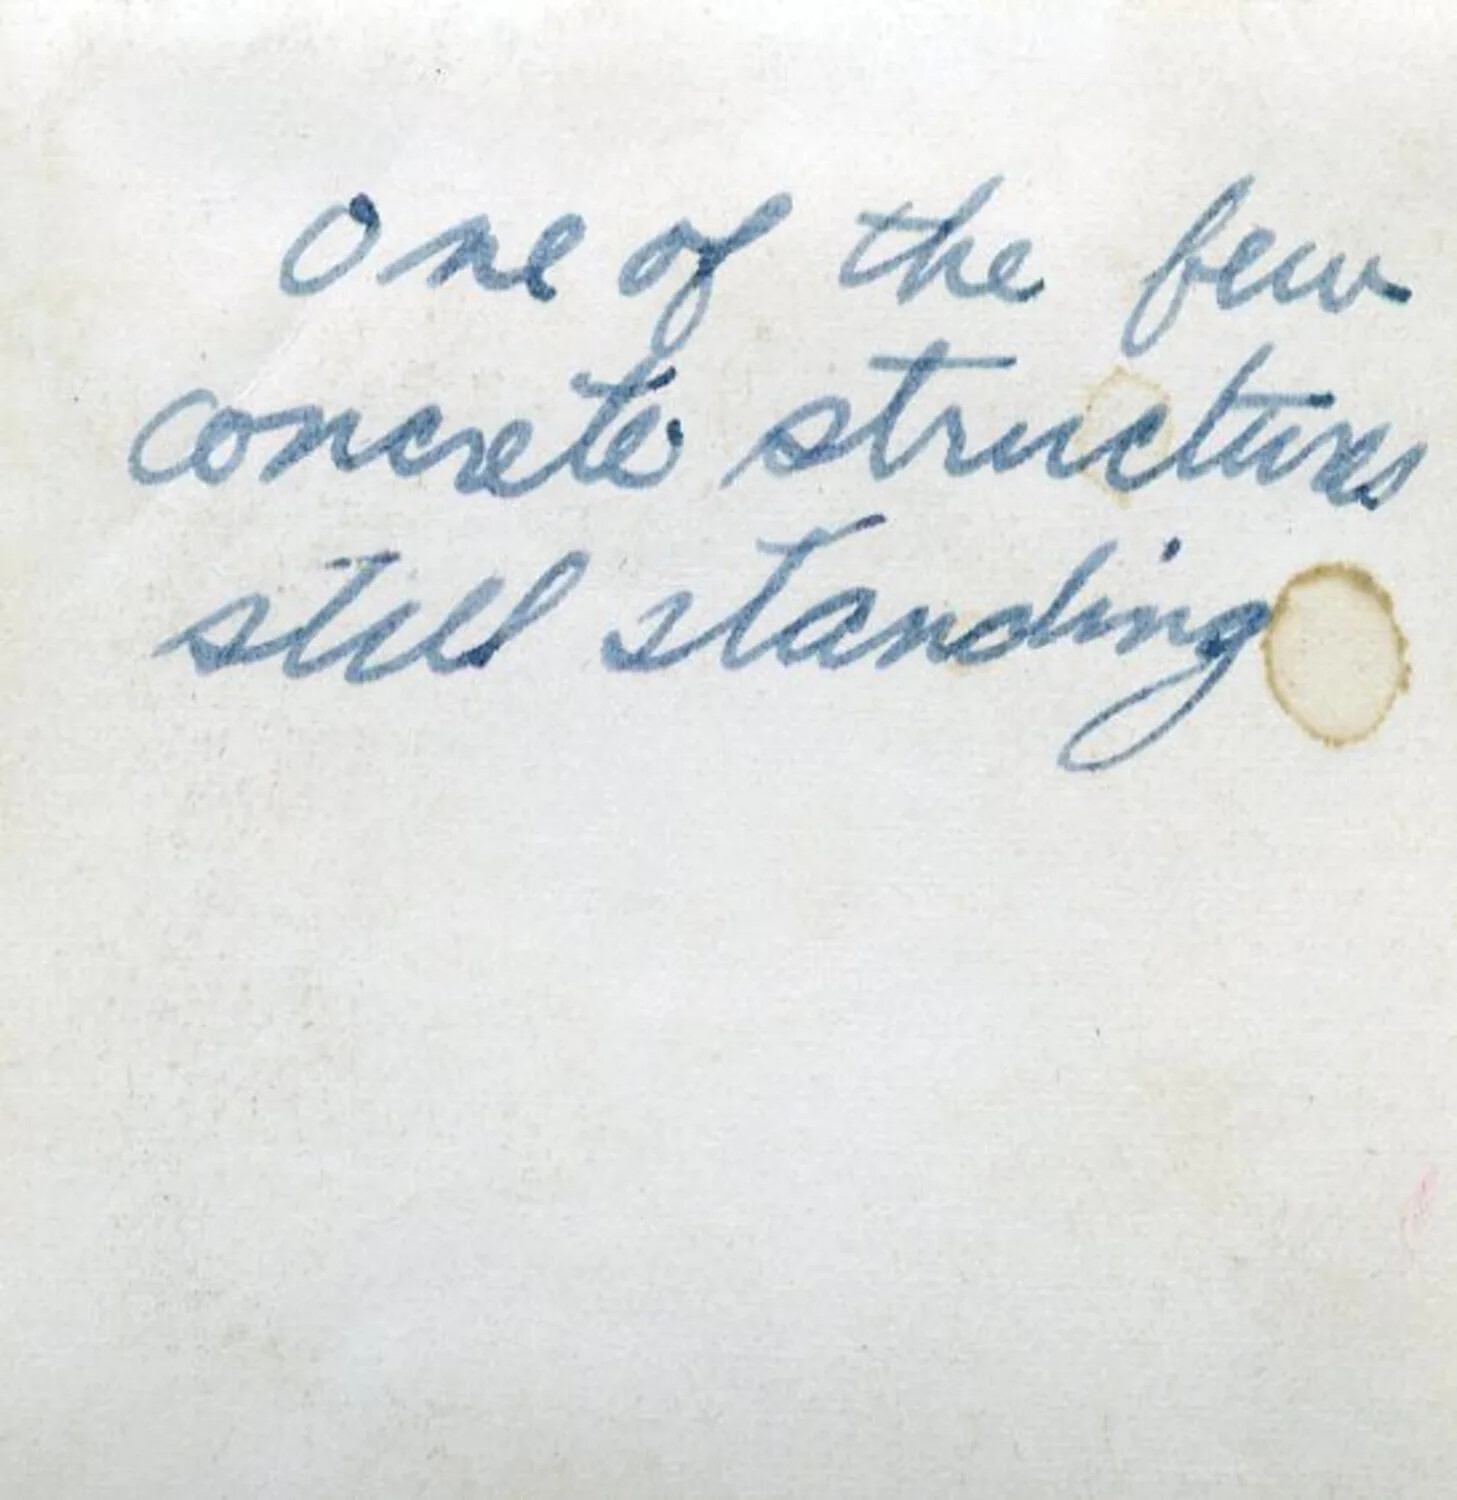 One of the few
concrete structures
still standing